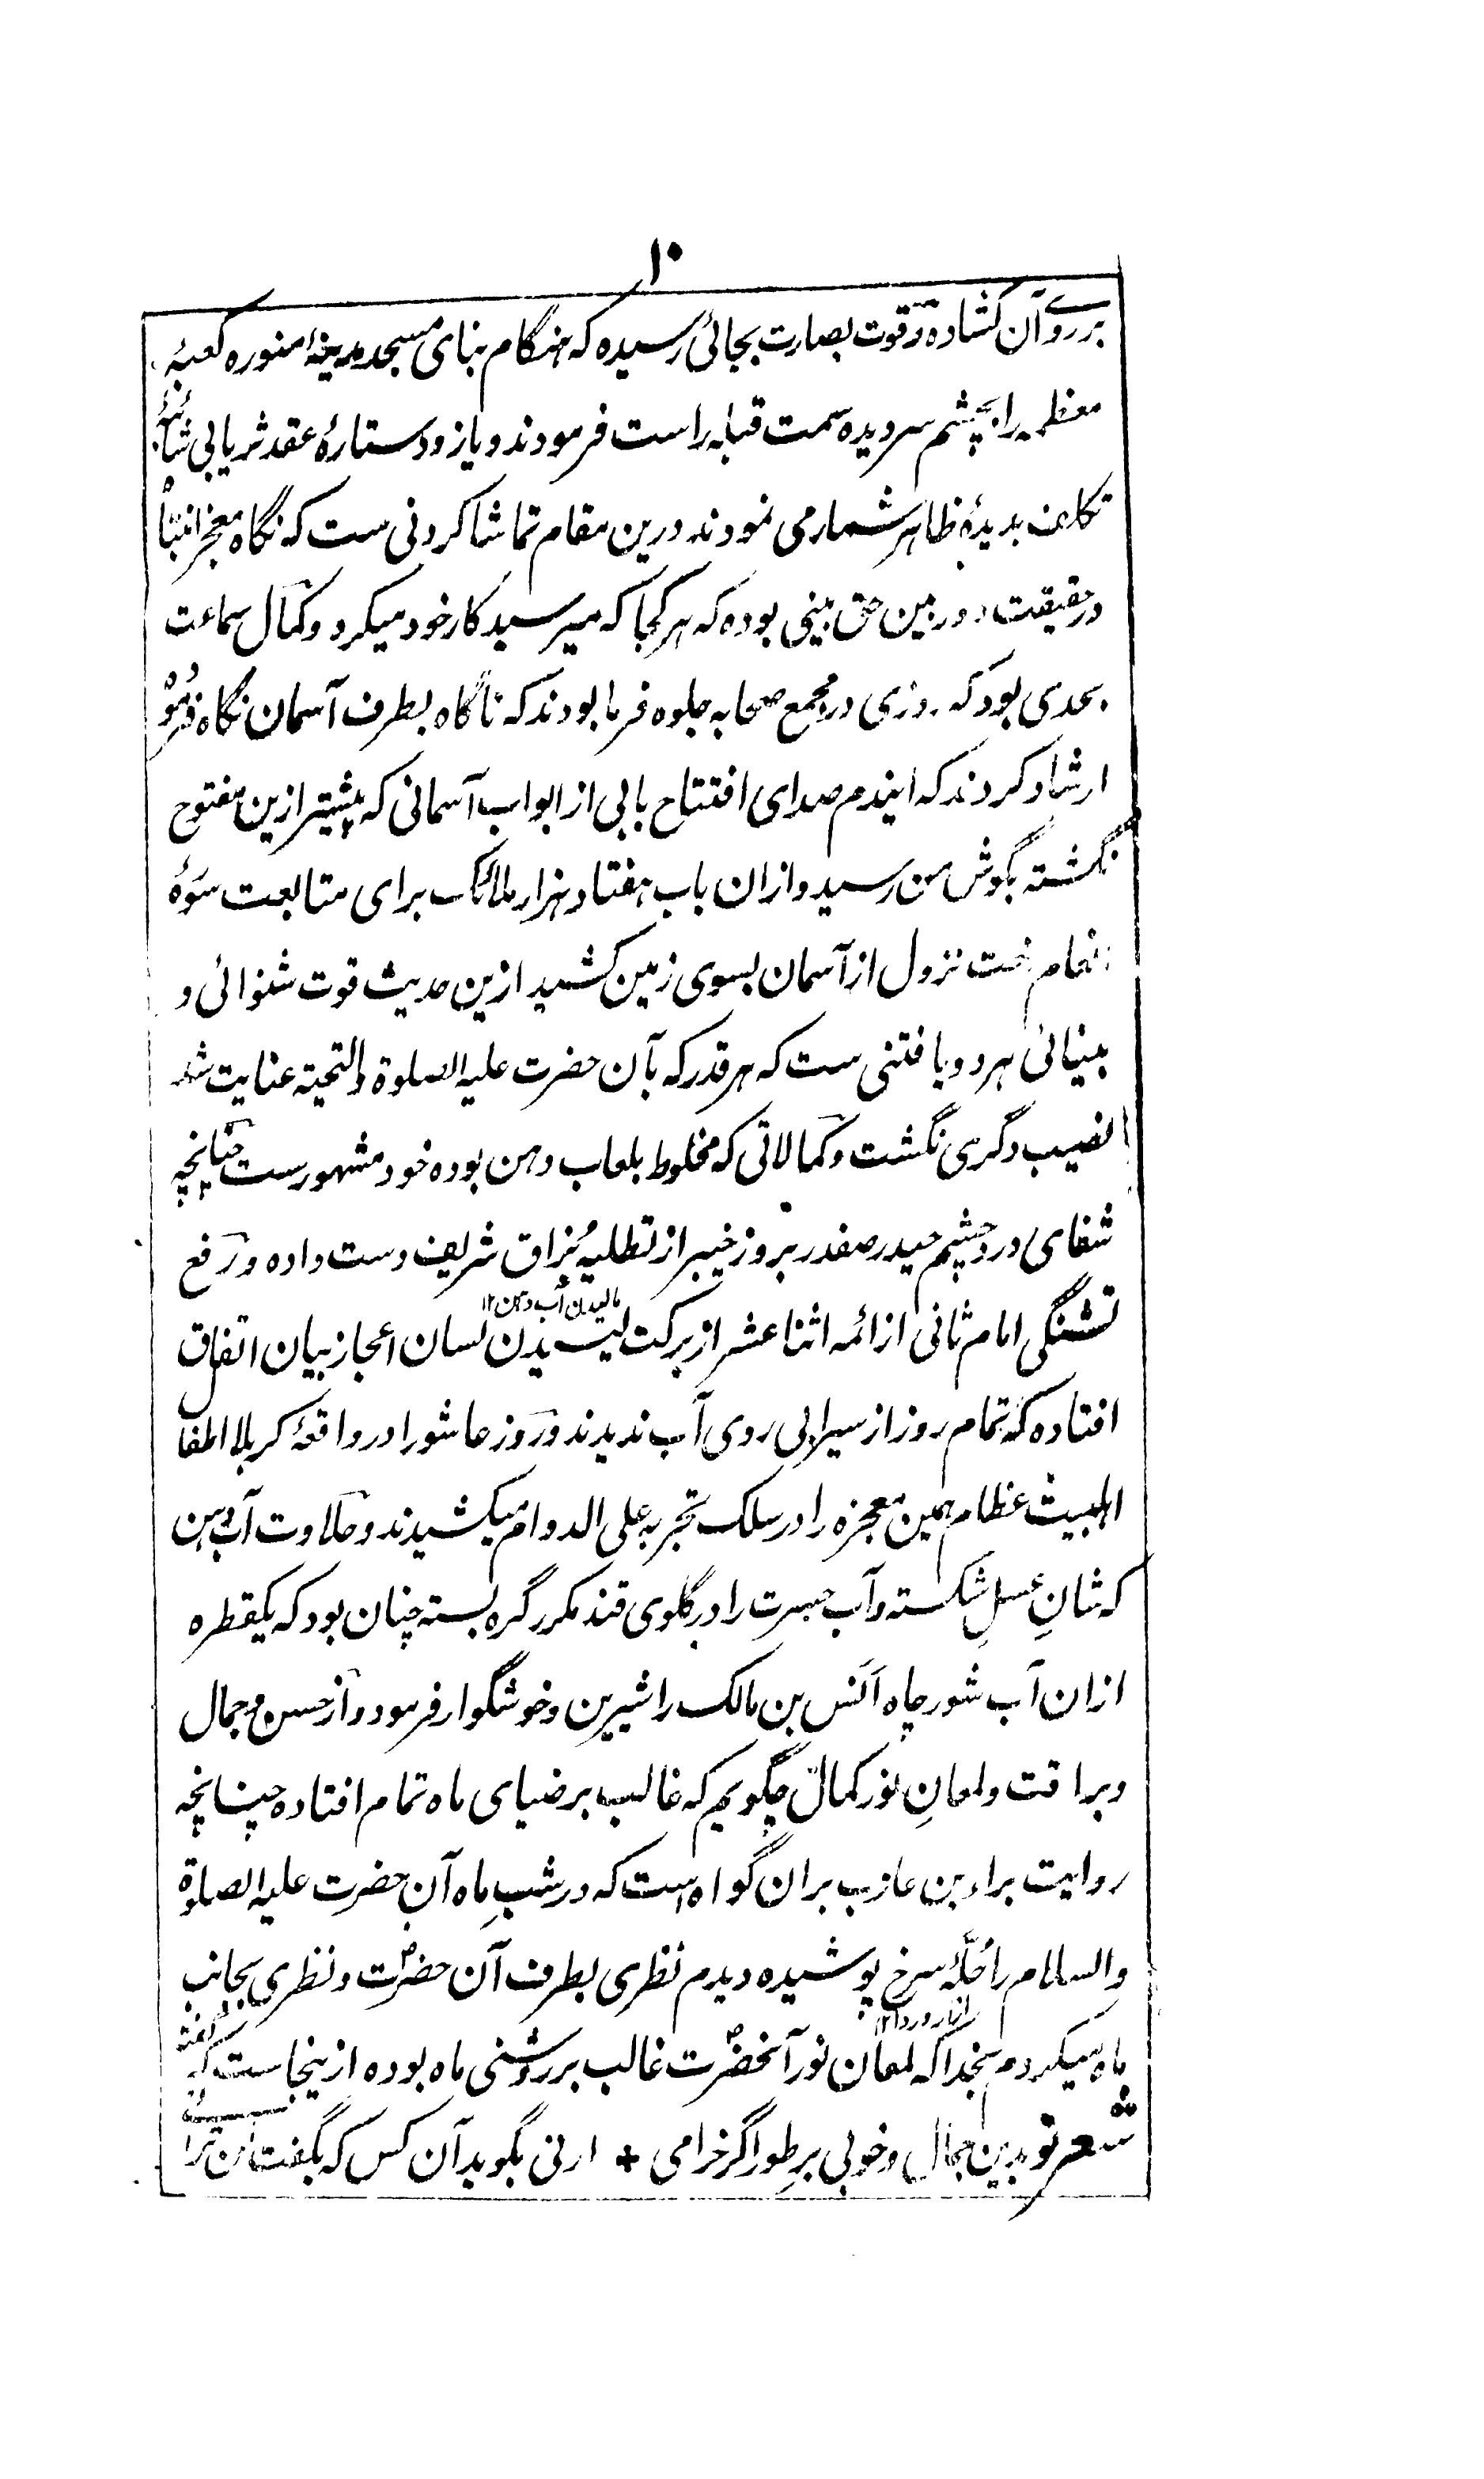 ۱۰
برروی آن کشاده و قوت بصارت بجائی رسیده که هنگام بنای مسجد مدینهٔ منوره کعبهٔ
معظمه را بچشم سر دیده سمت قبله راست فرمودند و یازده ستارهٔ عقد ثریا بی شائبهٔ
تکلف بدیدهٔ ظاهر شمار می نمودند درین مقام تماشا کردنی ست که نگاه معجز انتباه
درحقیقت دوربین حق بینی بوده که هر کجا که میرسید کار خود میکرد و کمال سماعت
بحدی بود که روزی در مجمع صحابه جلوه فرما بودند که ناگاه بطرف آسمان نگاه فرموده
ارشاد کردند که ایندم صدای افتتاح بابی از ابواب آسمانی که پیشتر ازین مفتوح
نگشته بگوش من رسید و ازان باب هفتاد هزار ملائک برای متابعت سورهٔ
انعام رخت نزول از آسمان بسوی زمین کشید ازین حدیث قوت شنوائی و
بینائی هر دو یافتنی ست که هر قدر که بآن حضرت علیه الصلوة والتحیته عنایت شد
نصیب دگری نگشت و کمالاتی که مخلوط بلعاب دهن بوده خود مشهورست چنانچه
شفای درد چشم حیدر صفدر بروز خیبر از تطلیهٔ بزاق شریف دست داده و رفع
مالیدن آب دهن ۱۲
تشنگی امام ثانی از ائمه اثنا عشر از برکت لیسیدن لسان اعجاز بیان اتفاق
افتاده که تمام روز از سیرابی روی آب ندیدند و روز عاشورا در واقعهٔ کربلا اطفال
اهلبیت عظام همین معجزه را در سلک تجربه علی الدوام میکشیدند و حلاوت آب دهن
که شانِ عسلِ شکسته و آب حسرت را در گلوی قند مکرر گره بسته چنان بود که یکقطره
ازان آب شور چاه انس بن مالک را شیرین و خوشگوار فرمود و از حسن و جمال
و براقت و لمعانِ نور کمال چگویم که غالب بر ضیای ماه تمام افتاده چنانچه
روایت براء بن عازب بران گواه است که در شبِ ماه آن حضرت علیه الصلوة
والسلام را حُلّهٔ سرخ پوشیده دیدم نظری بطرف آن حضرت و نظری بجانب
ماه میکردم بخدا که لمعان نور آنحضرت غالب بر روشنی ماه بوده ازینجاست که گفته
شعر تو بدین جمال و خوبی برِ طور اگر خرامی + ارنی بگوید آن کس که بگفت لن ترانی